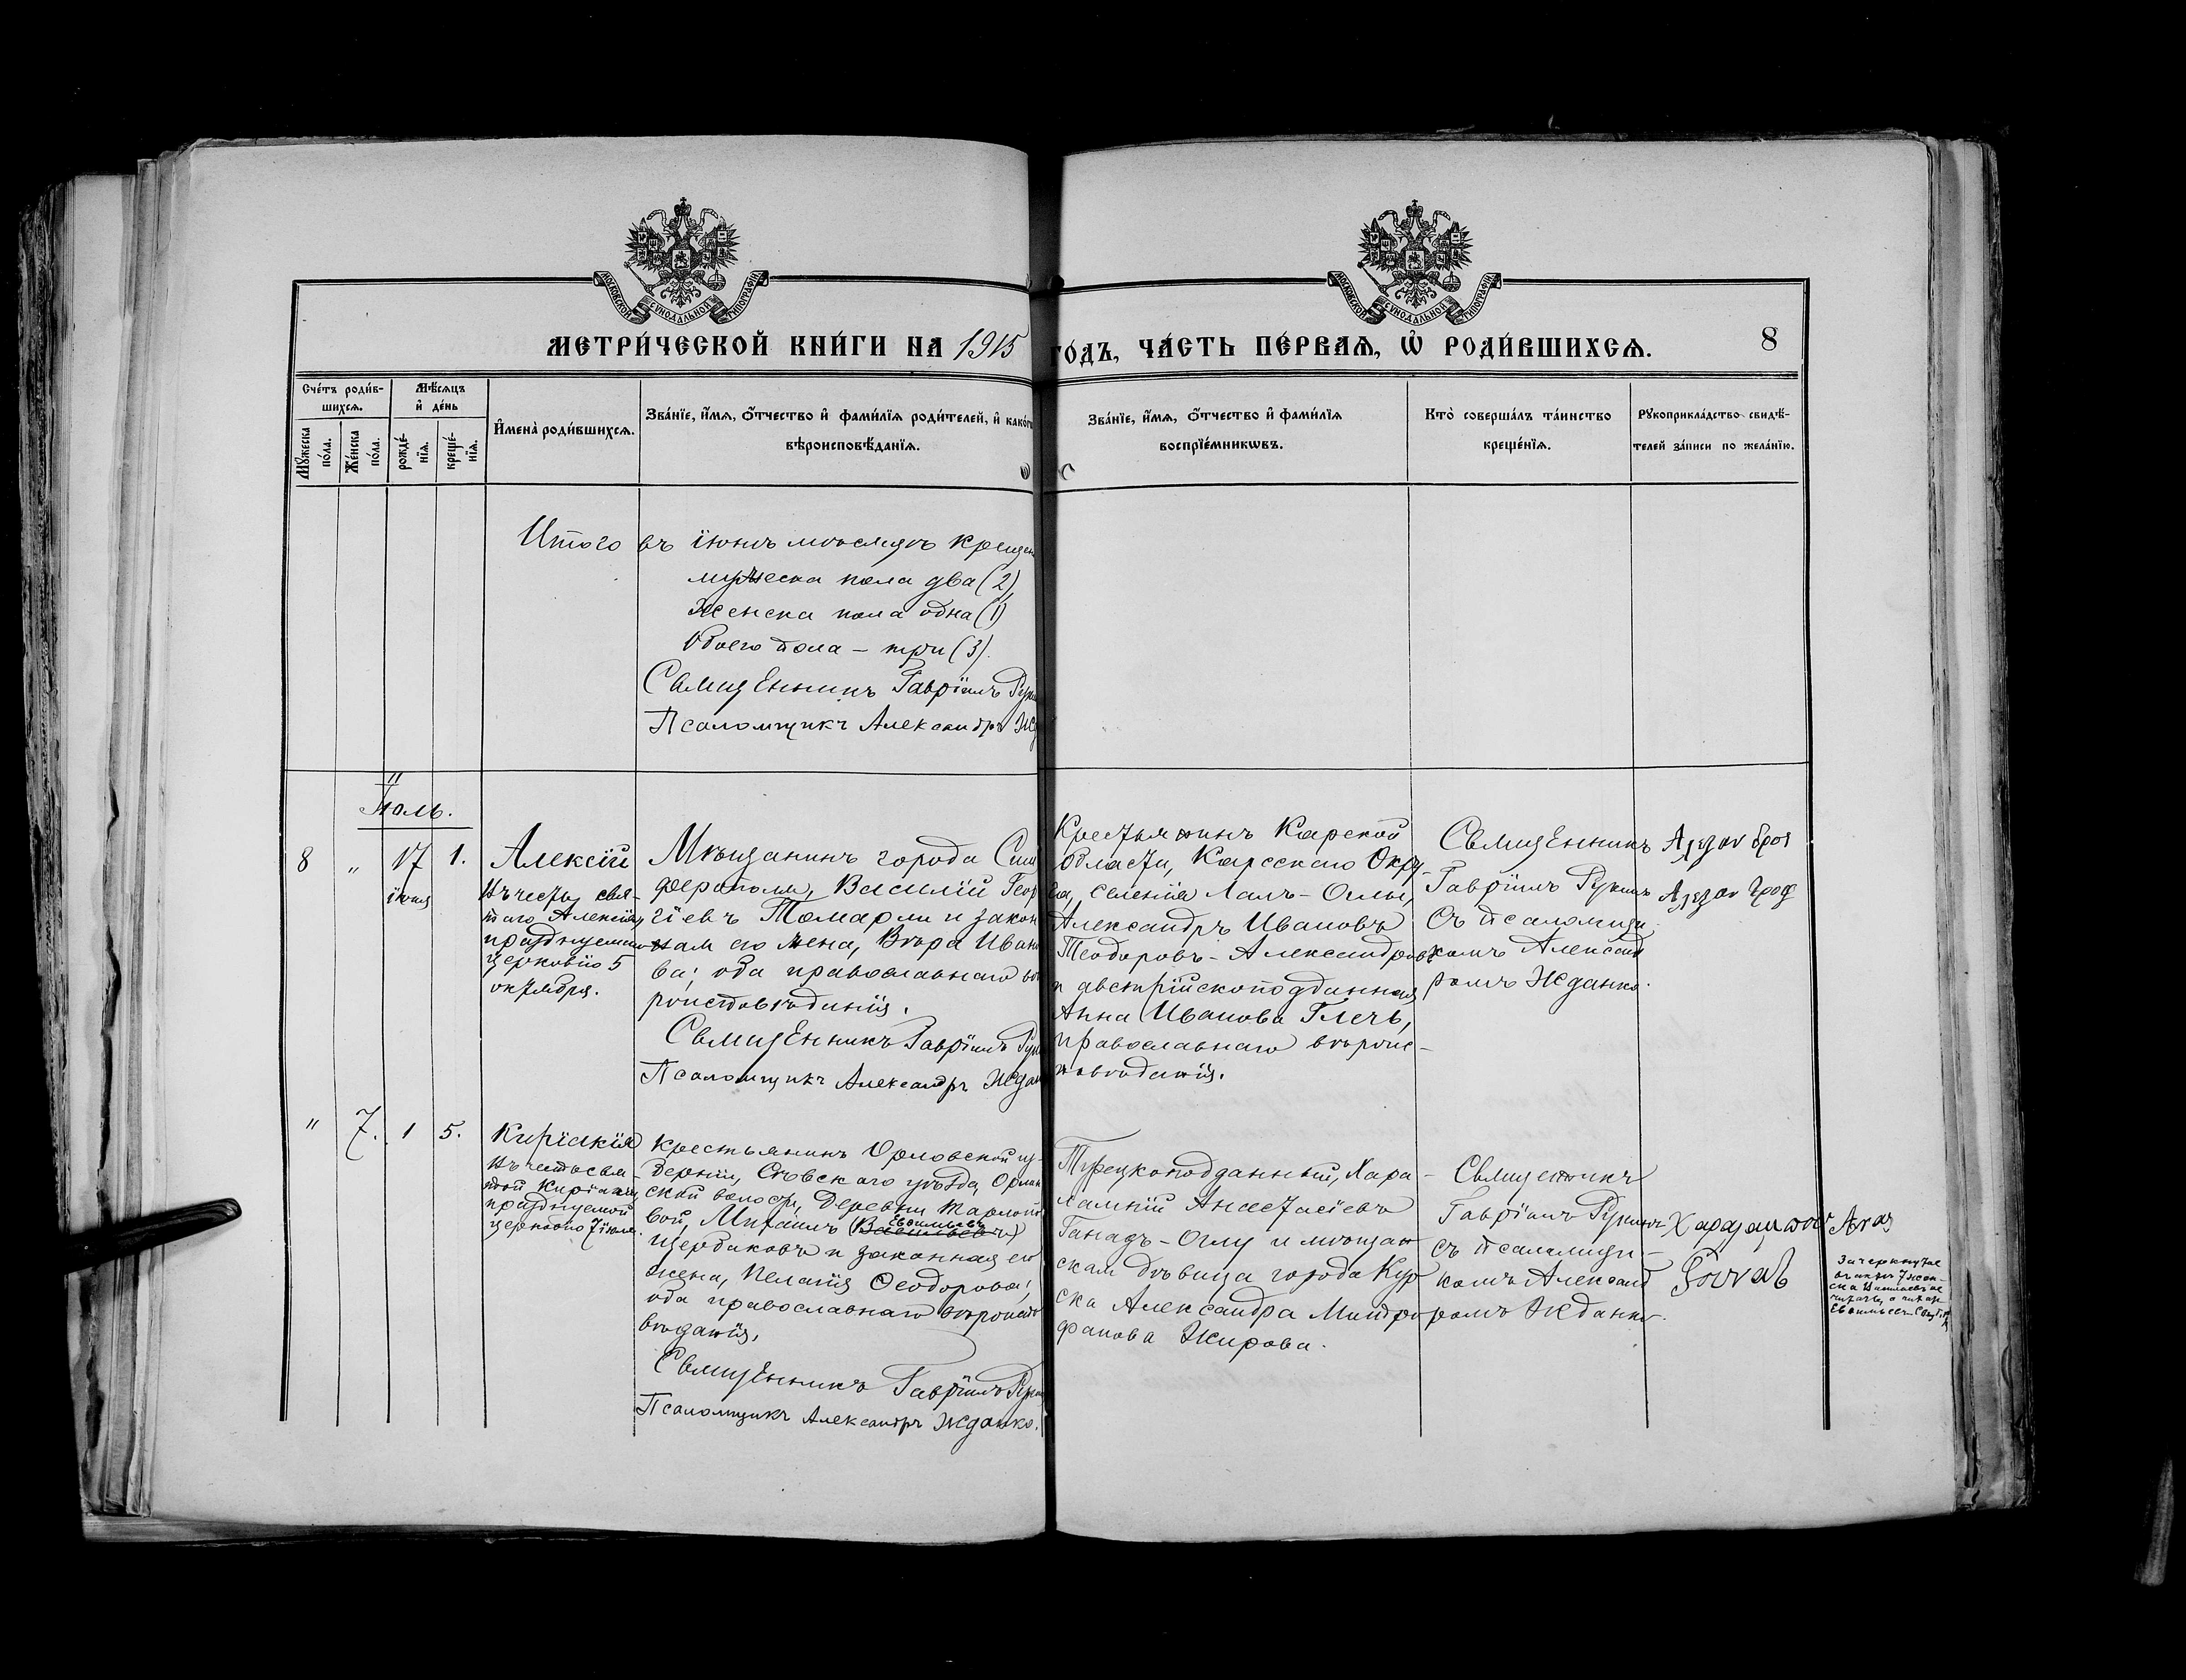 МОСКОВСКОЙ СѴНОДАЛЬНОЙ ТИПОГРАФІИ
МОСКОВСКОЙ СѴНОДАЛЬНОЙ ТИПОГРАФІИ
МЕТРИ́ЧЕСКОЙ КНИ́ГИ НА 1915 ГО́ДЪ, ЧА́СТЬ ПЕ́РВАѦ, Ѽ РОДИ́ВШИХСѦ.
8
Сче́тъ роди́в-
шихсѧ.
Мѣ́сѧцъ
и҆ де́нь
Мꙋ́жеска
по́ла.
Же́нска
по́ла.
рожде́-
нїѧ.
креще́-
нїѧ.
И҆мена̀ роди́вшихсѧ.
Зва́нїе, и҆́мѧ, ѻ҆́тчество и҆ фами́лїѧ роди́телей, и҆ како́гѡ
вѣроисповѣ́данїѧ.
Зва́нїе, и҆́мѧ, ѻ҆́тчество и҆ фами́лїѧ
воспрїе́мникѡвъ.
Кто̀ соверша́лъ та́инство
креще́нїѧ.
Рꙋкоприкла́дство свидѣ́-
телей за́писи по жела́нїю.
Итого въ іюнѣ мѣсяцѣ крещен
мужеска пола два (2)
Женска пола одна (1)
Обоего пола – три (3).
Священникъ Гавріилъ
Псаломщикъ Александръ
Іюль.
8 " 17 1.
іюня
Алексій
въ честь свя-
таго Алексія,
празднуемаго
церковію 5
октября.
Мѣщанинъ города Сим
ферополя, Василій Геор
гіевъ Томарли и закон
ная его жена, Вѣра Ивано
ва; оба православнаго вѣ
роисповѣданія.
Священникъ Гавріилъ
Псаломщикъ Александръ Ждан
Крестьянинъ Карской
области, Карсскаго Окру-
га, селенія Лалъ-Оглы,
Александръ Ивановъ
Теодоровъ-Александровъ
и австрійскоподданная
Анна Иванова Глечъ,
православнаго вѣроис-
повѣданія.
Священникъ
Гавріилъ
съ псаломщи-
комъ Александ
ромъ Жданко.
" 7. 1 5.
Киріакія
въ честь свя
той Киріакіи,
празднуемой
церковію 7 іюля.
Крестьянинъ Орловской гу-
берніи, Сѣвскаго уѣзда,
ской волости, деревни
вой, Михаилъ (Васильевъ)
Евсильевъ
Щербаковъ и законная его
жена, Пелагія Ѳеодорова;
оба православнаго вѣроиспо
вѣданія.
Священникъ Гавріилъ
Псаломщикъ Александръ Жданко.
Турецкоподданный, Хара-
лампій Анастасіевъ
Ганадъ-Оглу и мѣщан
ская дѣвица города Кур
ска Александра Митро
фанова Жирова.
Священникъ
Гавріилъ
съ псаломщи-
комъ Александ
ромъ Жданко.
Зачеркнутое